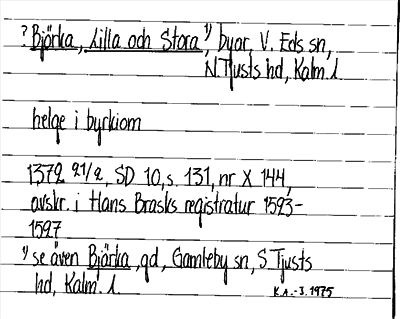 ? Björka, Lilla och Stora ¹⁾, byar, V. Eds sn,
N Tjusts hd, Kalm. l.
helge i byrkiom
1372 21/2, SD 10, s. 131, nr X 144,
avskr. i Hans Brasks registratur 1523-
1527
¹⁾ se även Björka, gd, Gamleby sn, S Tjusts
hd, Kalm. l.
K.A.-J. 1975